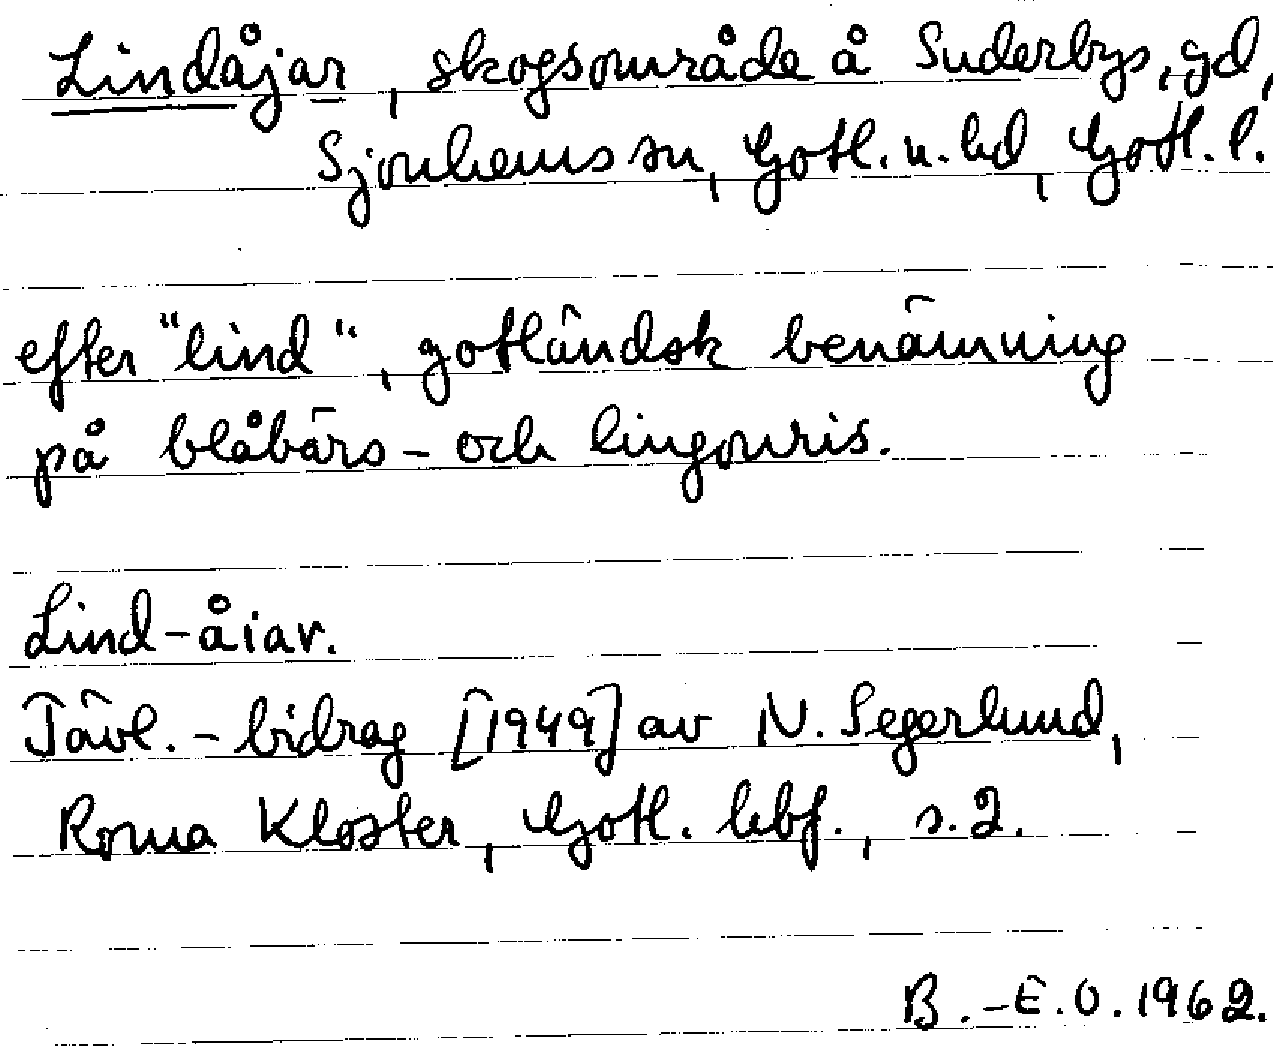 Lindåjar, skogsområde å Suderbys, gd,
Sjonhems sn, Gotl. n. hd, Gotl. l.
efter "lind", gotländsk benämning
på blåbärs- och lingonris.
Lind-åiar.
Tävl.-bidrag [1949] av N. Segerlund,
Roma Kloster, Gotl. hbf., s. 2.
B.-E.O. 1962.